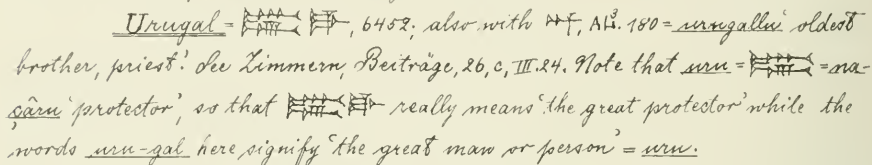 Urugal = 𒋀 𒃲, 6452; also with 𒀭, AL³. 180 = urugallu 'oldest
brother, priest'. See Zimmern, Beiträge, 26, c, III. 24. Note that uru = 𒋀 = na-
ṣâru 'protector', so that 𒋀 𒃲 really means 'the great protector' while the
words uru-gal here signify 'the great man or person' = uru.